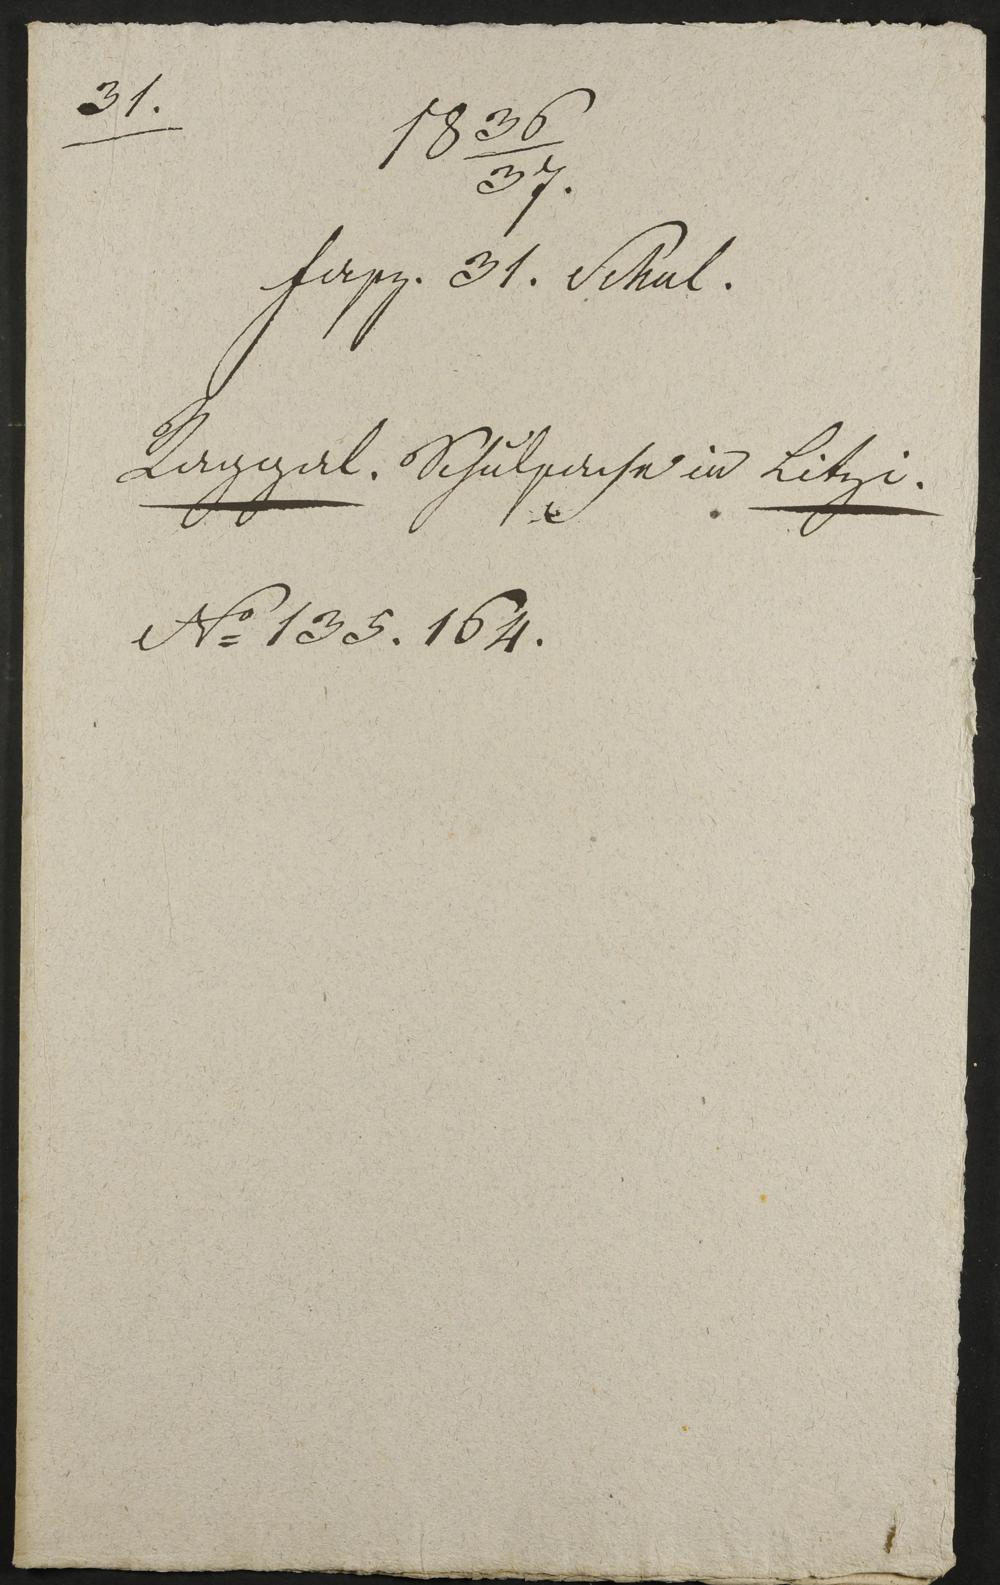 31.
18 36/37.
Fasz. 31. Schul.
Raggal. Schulsache in Litzi.
No 135. 164.